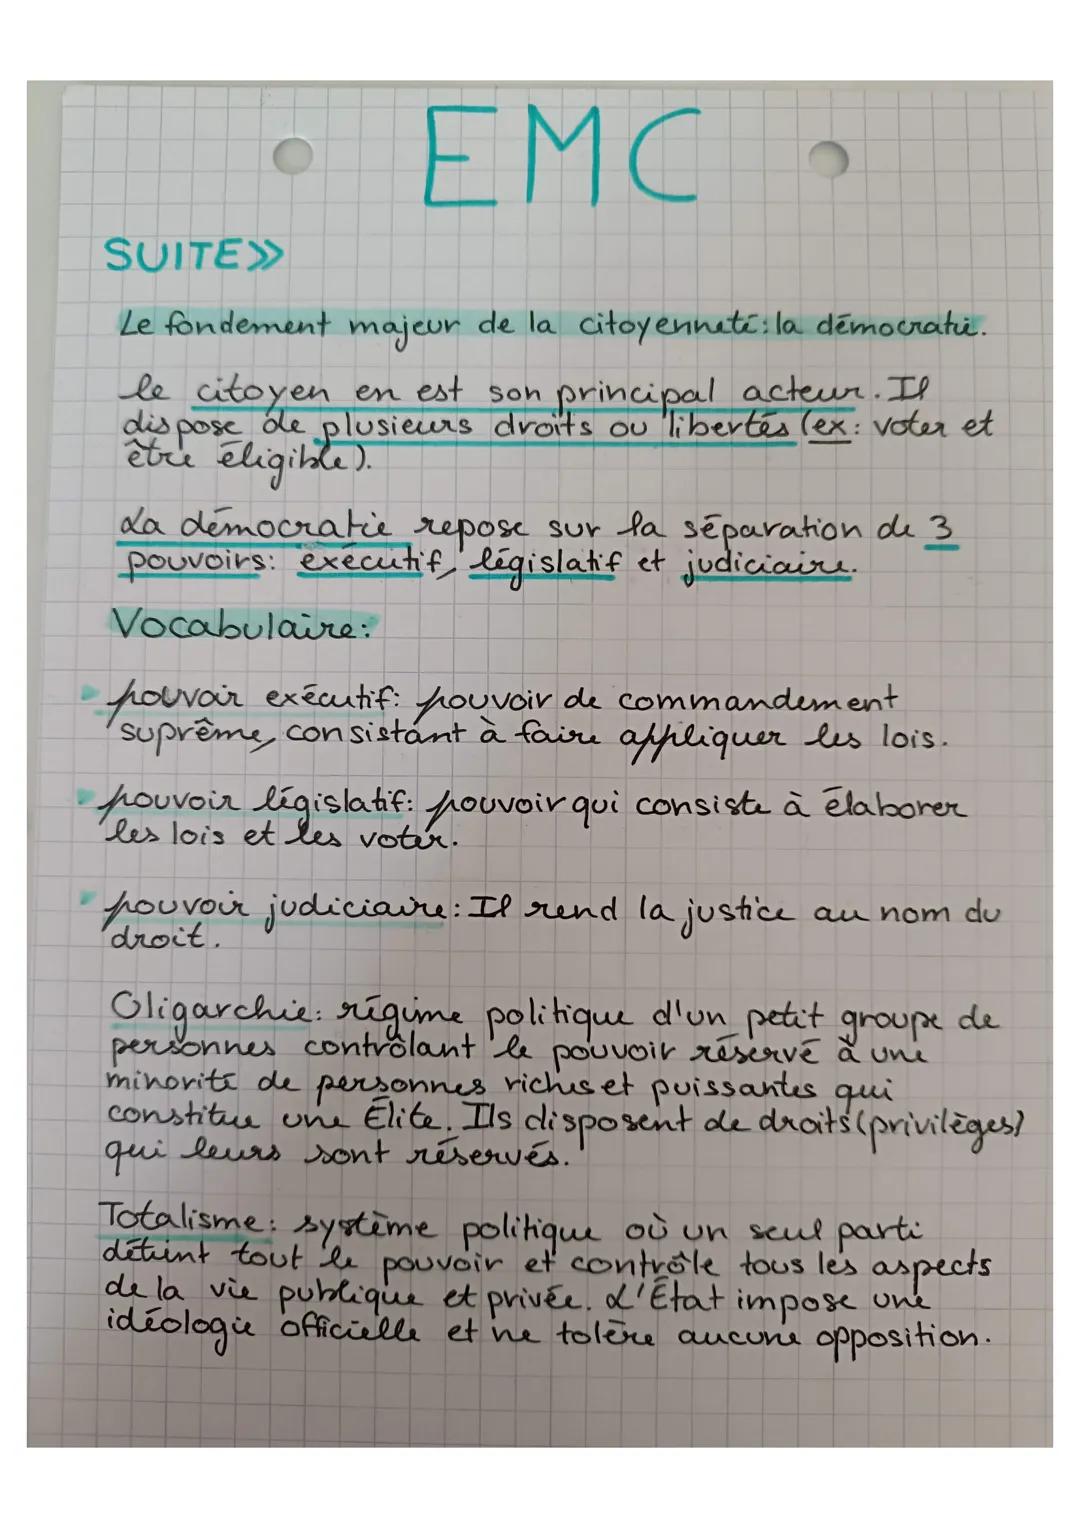 EMC
SUITE»
Le fondement majeur de la citoyenneté: la démocratie.
le citoyen en est son principal acteur. Il
dispose de plusieurs droits ou libertés (ex: voter et
être éligible).
La démocratie repose sur la séparation de 3
pouvoirs: exécutif, législatif et judiciaire.
Vocabulaire:
pouvoir exécutif: pouvoir de commandement
suprême, consistant à faire appliquer les lois.
pouvoir législatif: pouvoir qui consiste à élaborer
les lois et les voter.
pouvoir judiciaire: Il rend la justice au nom du
droit.
Oligarchie: régime politique d'un petit groupe de
personnes contrôlant le pouvoir réservé à une
minorité de personnes riches et puissantes qui
constitue une Élite. Ils disposent de droits (privilèges)
qui leurs sont réservés.
Totalisme: système politique où un seul parti
détient tout le pouvoir et contrôle tous les aspects
de la vie publique et privée. L'État impose une
idéologie officielle et ne tolère aucune opposition.